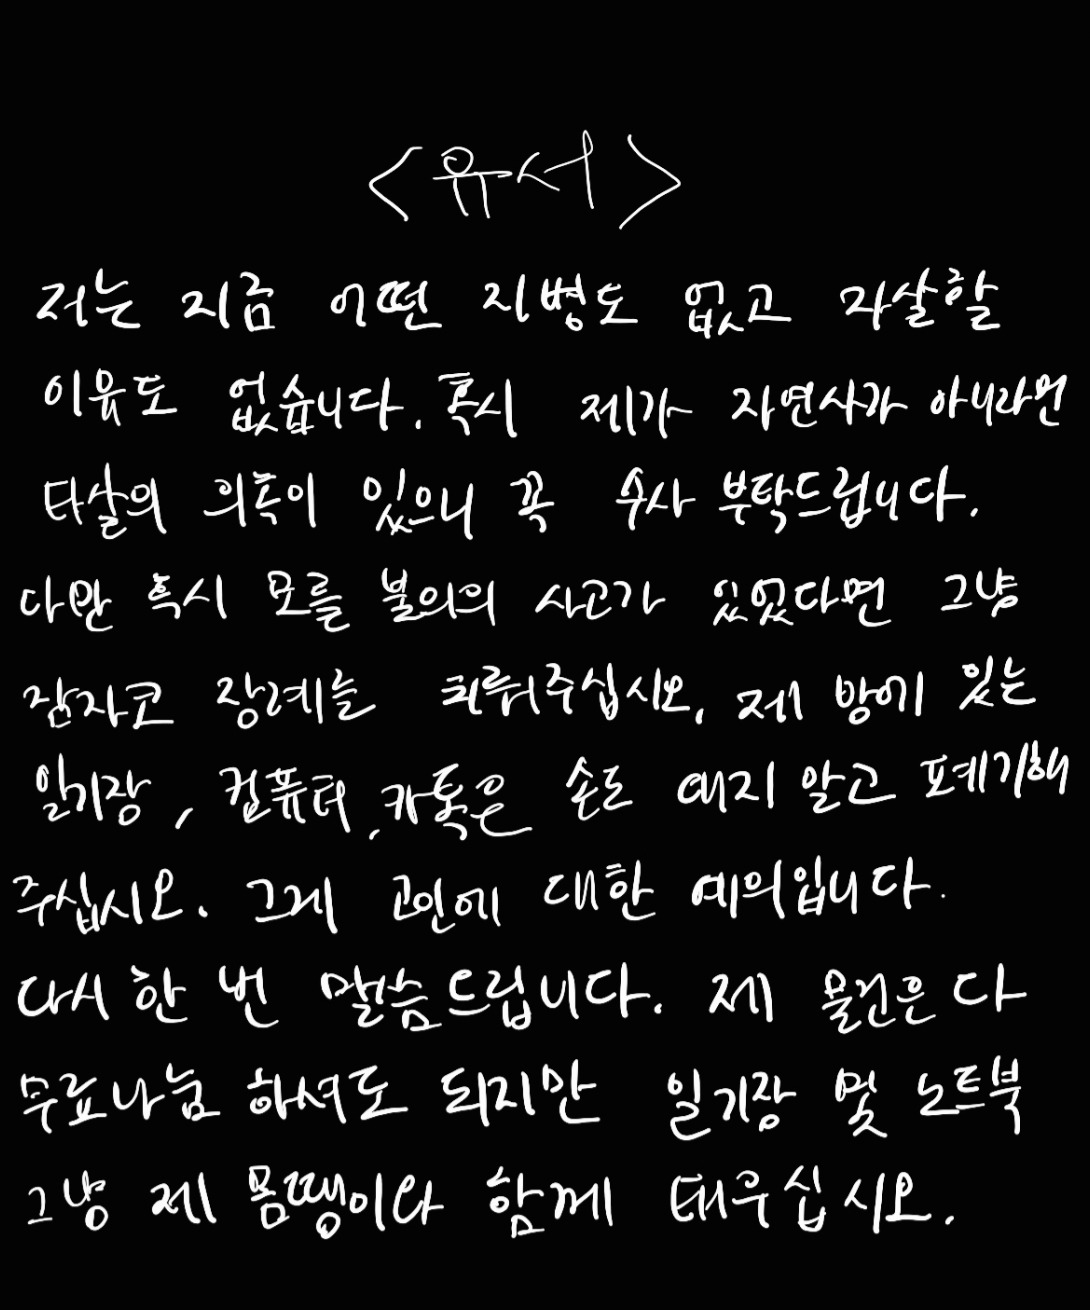 <유서>
저는 지금 어떤 지병도 없고 자살할
이유도 없습니다. 혹시 제가 자연사가 아니라면
타살의 의혹이 있으니 꼭 수사 부탁드립니다.
다만 혹시 모를 불의의 사고가 있었다면 그냥
잠자코 장례를 치뤄주십시오. 제 방에 있는
일기장, 컴퓨터, 카톡은 손도 대지 말고 폐기해
주십시오. 그게 고인에 대한 예의입니다.
다시 한 번 말씀드립니다. 제 물건은 다
무료나눔 하셔도 되지만 일기장 및 노트북
그냥 제 몸땡이와 함께 태우십시오.